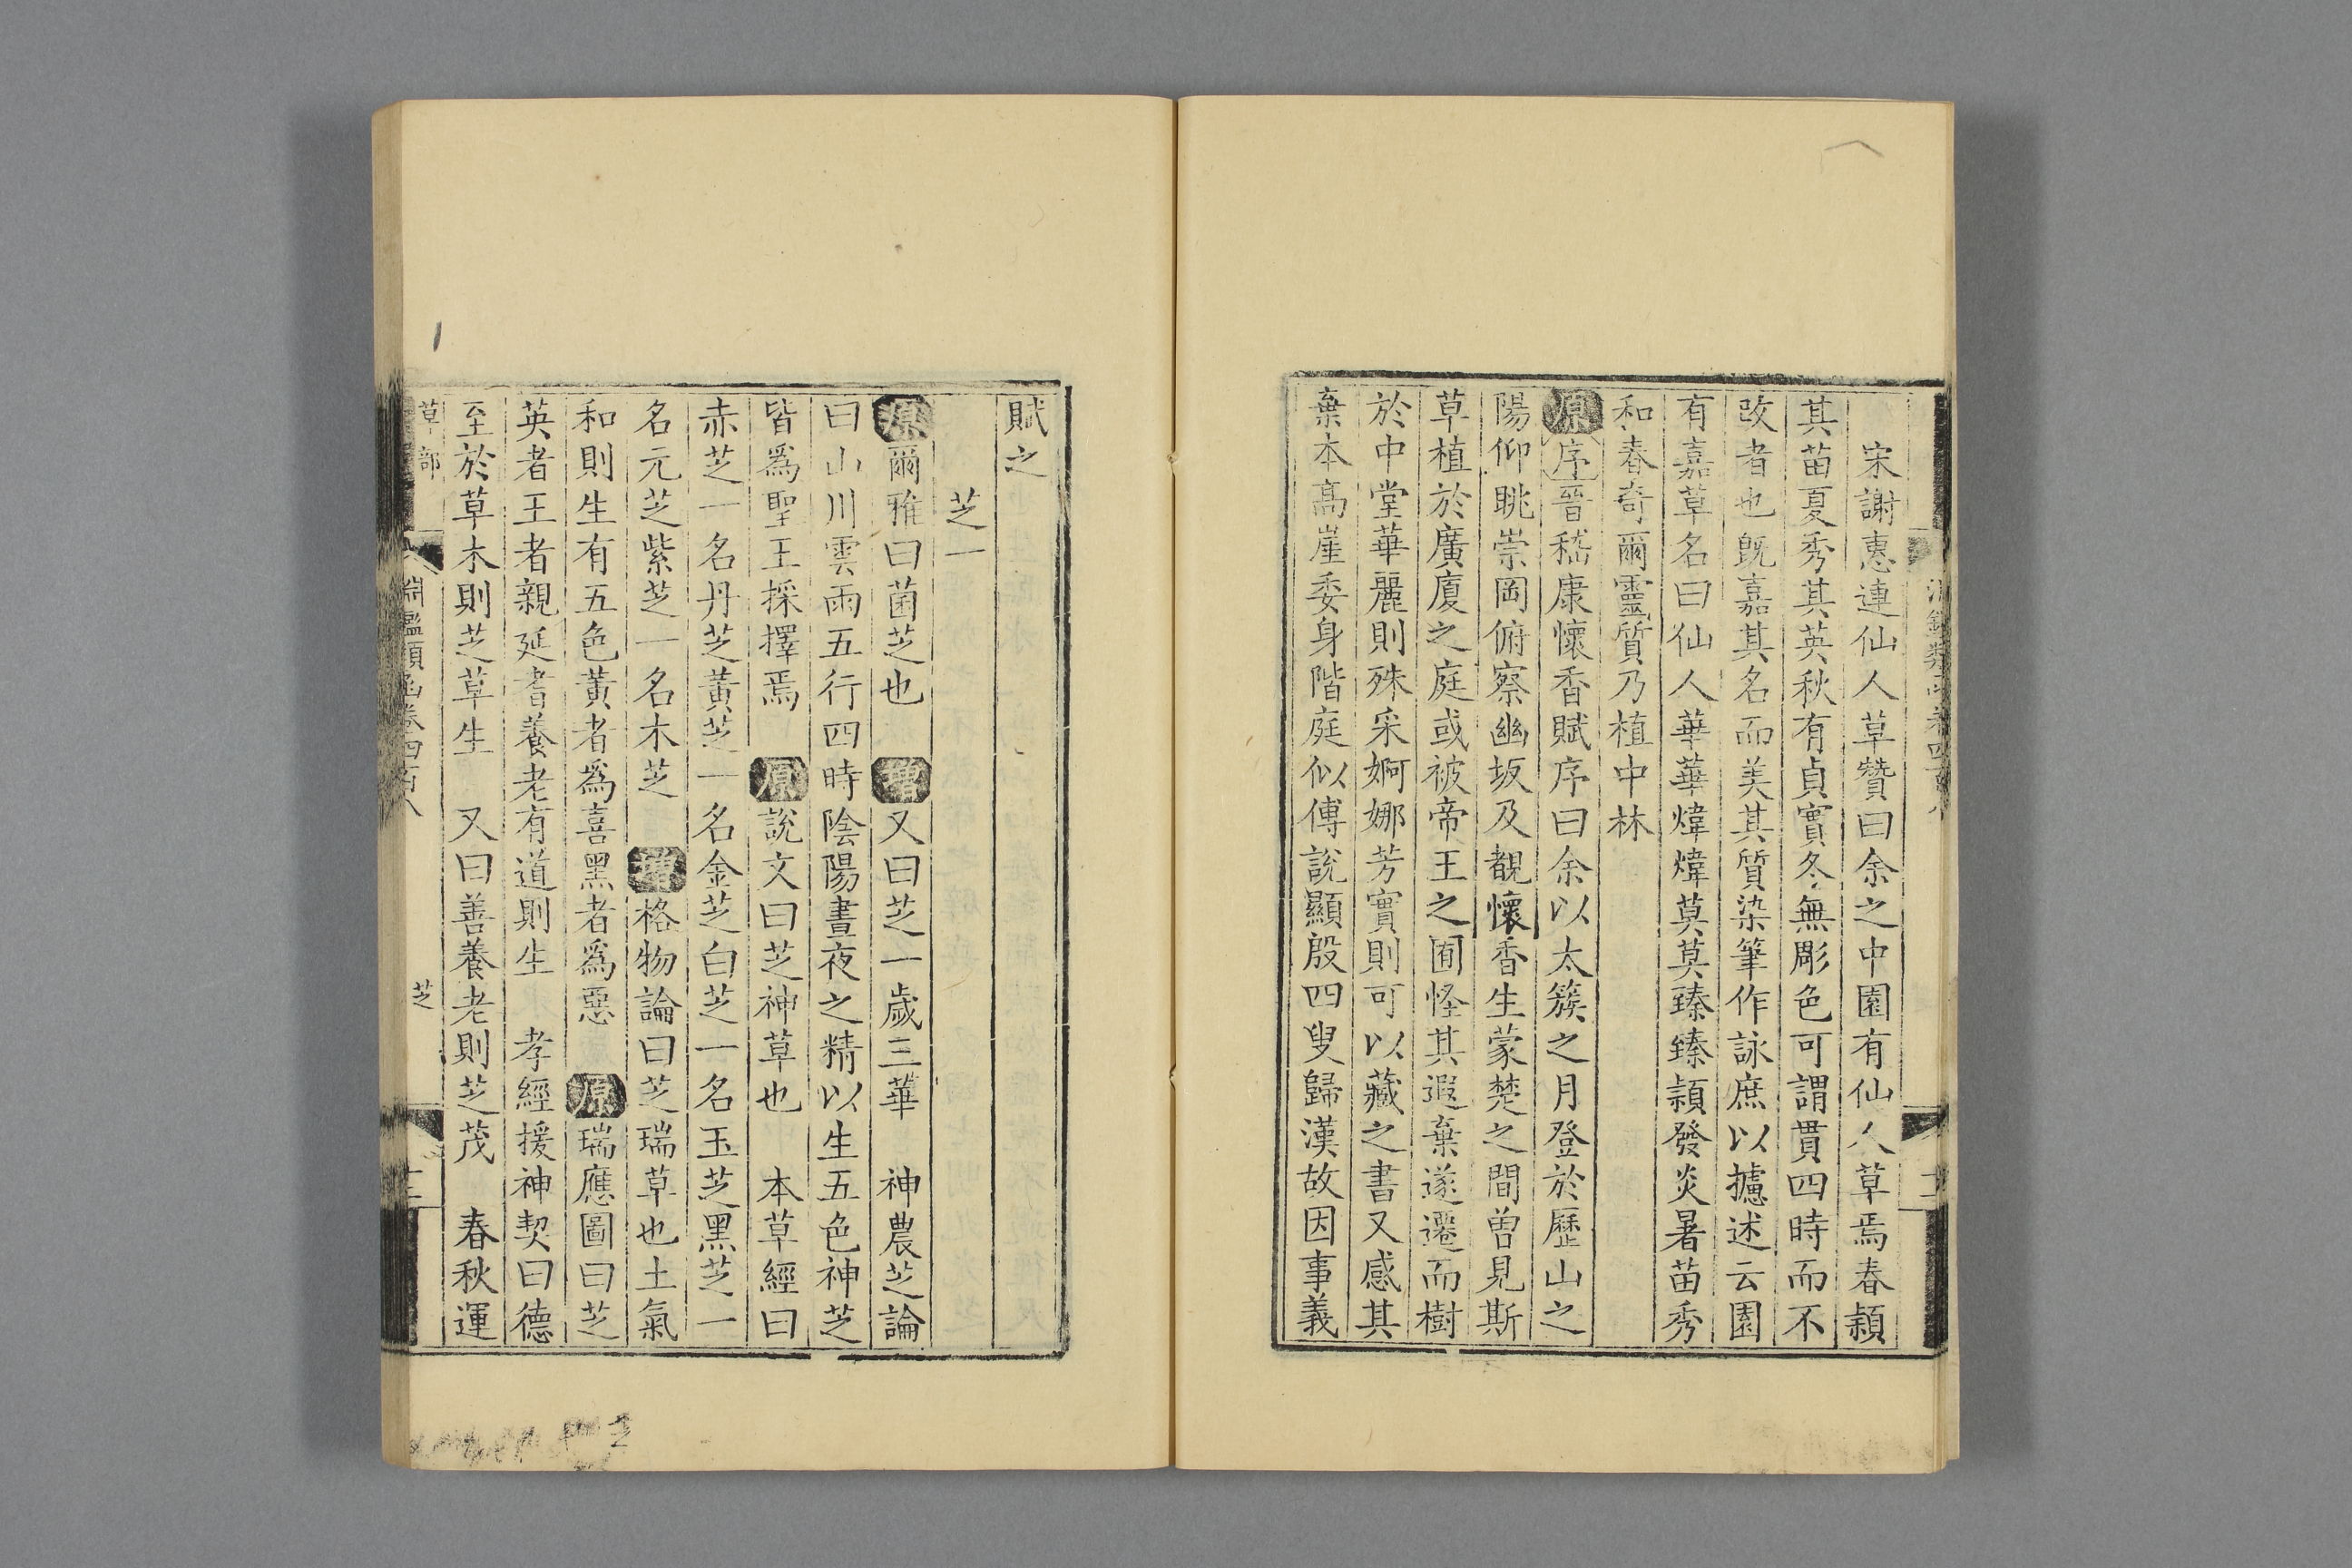 宋謝惠連仙人草贊曰余之中園有仙人草焉春穎
其苗夏秀其英秋有貞實冬無彫色可謂貫四時而不
改者也旣嘉其名而美其質染筆作詠庶以攄述云園
有嘉草名曰仙人華華煒煒莫莫臻臻穎發炎暑苗秀
和春奇爾靈質乃植中林
原序晉嵇康懷香賦序曰余以太簇之月登於歷山之
陽仰眺崇岡俯察幽坂及覩懷香生蒙楚之間曾見斯
草植於廣廈之庭或被帝王之囿怪其遐棄遂遷而樹
於中堂華麗則殊采婀娜芳實則可以藏之書又感其
棄本高崖委身階庭似傅說顯殷四叟歸漢故因事義
賦之
芝一
原爾雅曰菌芝也 增又曰芝一歲三華 神農芝論
曰山川雲雨五行四時陰陽晝夜之精以生五色神芝
皆爲聖王採擇焉 原說文曰芝神草也 本草經曰
赤芝一名丹芝黃芝一名金芝白芝一名玉芝黑芝一
名元芝紫芝一名木芝 增格物論曰芝瑞草也土氣
和則生有五色黃者爲喜黑者爲惡 原瑞應圖曰芝
英者王者親延耆養老有道則生 孝經援神契曰德
至於草木則芝草生 又曰善養老則芝茂 春秋運
草部 淵鑑類函卷四百八 芝